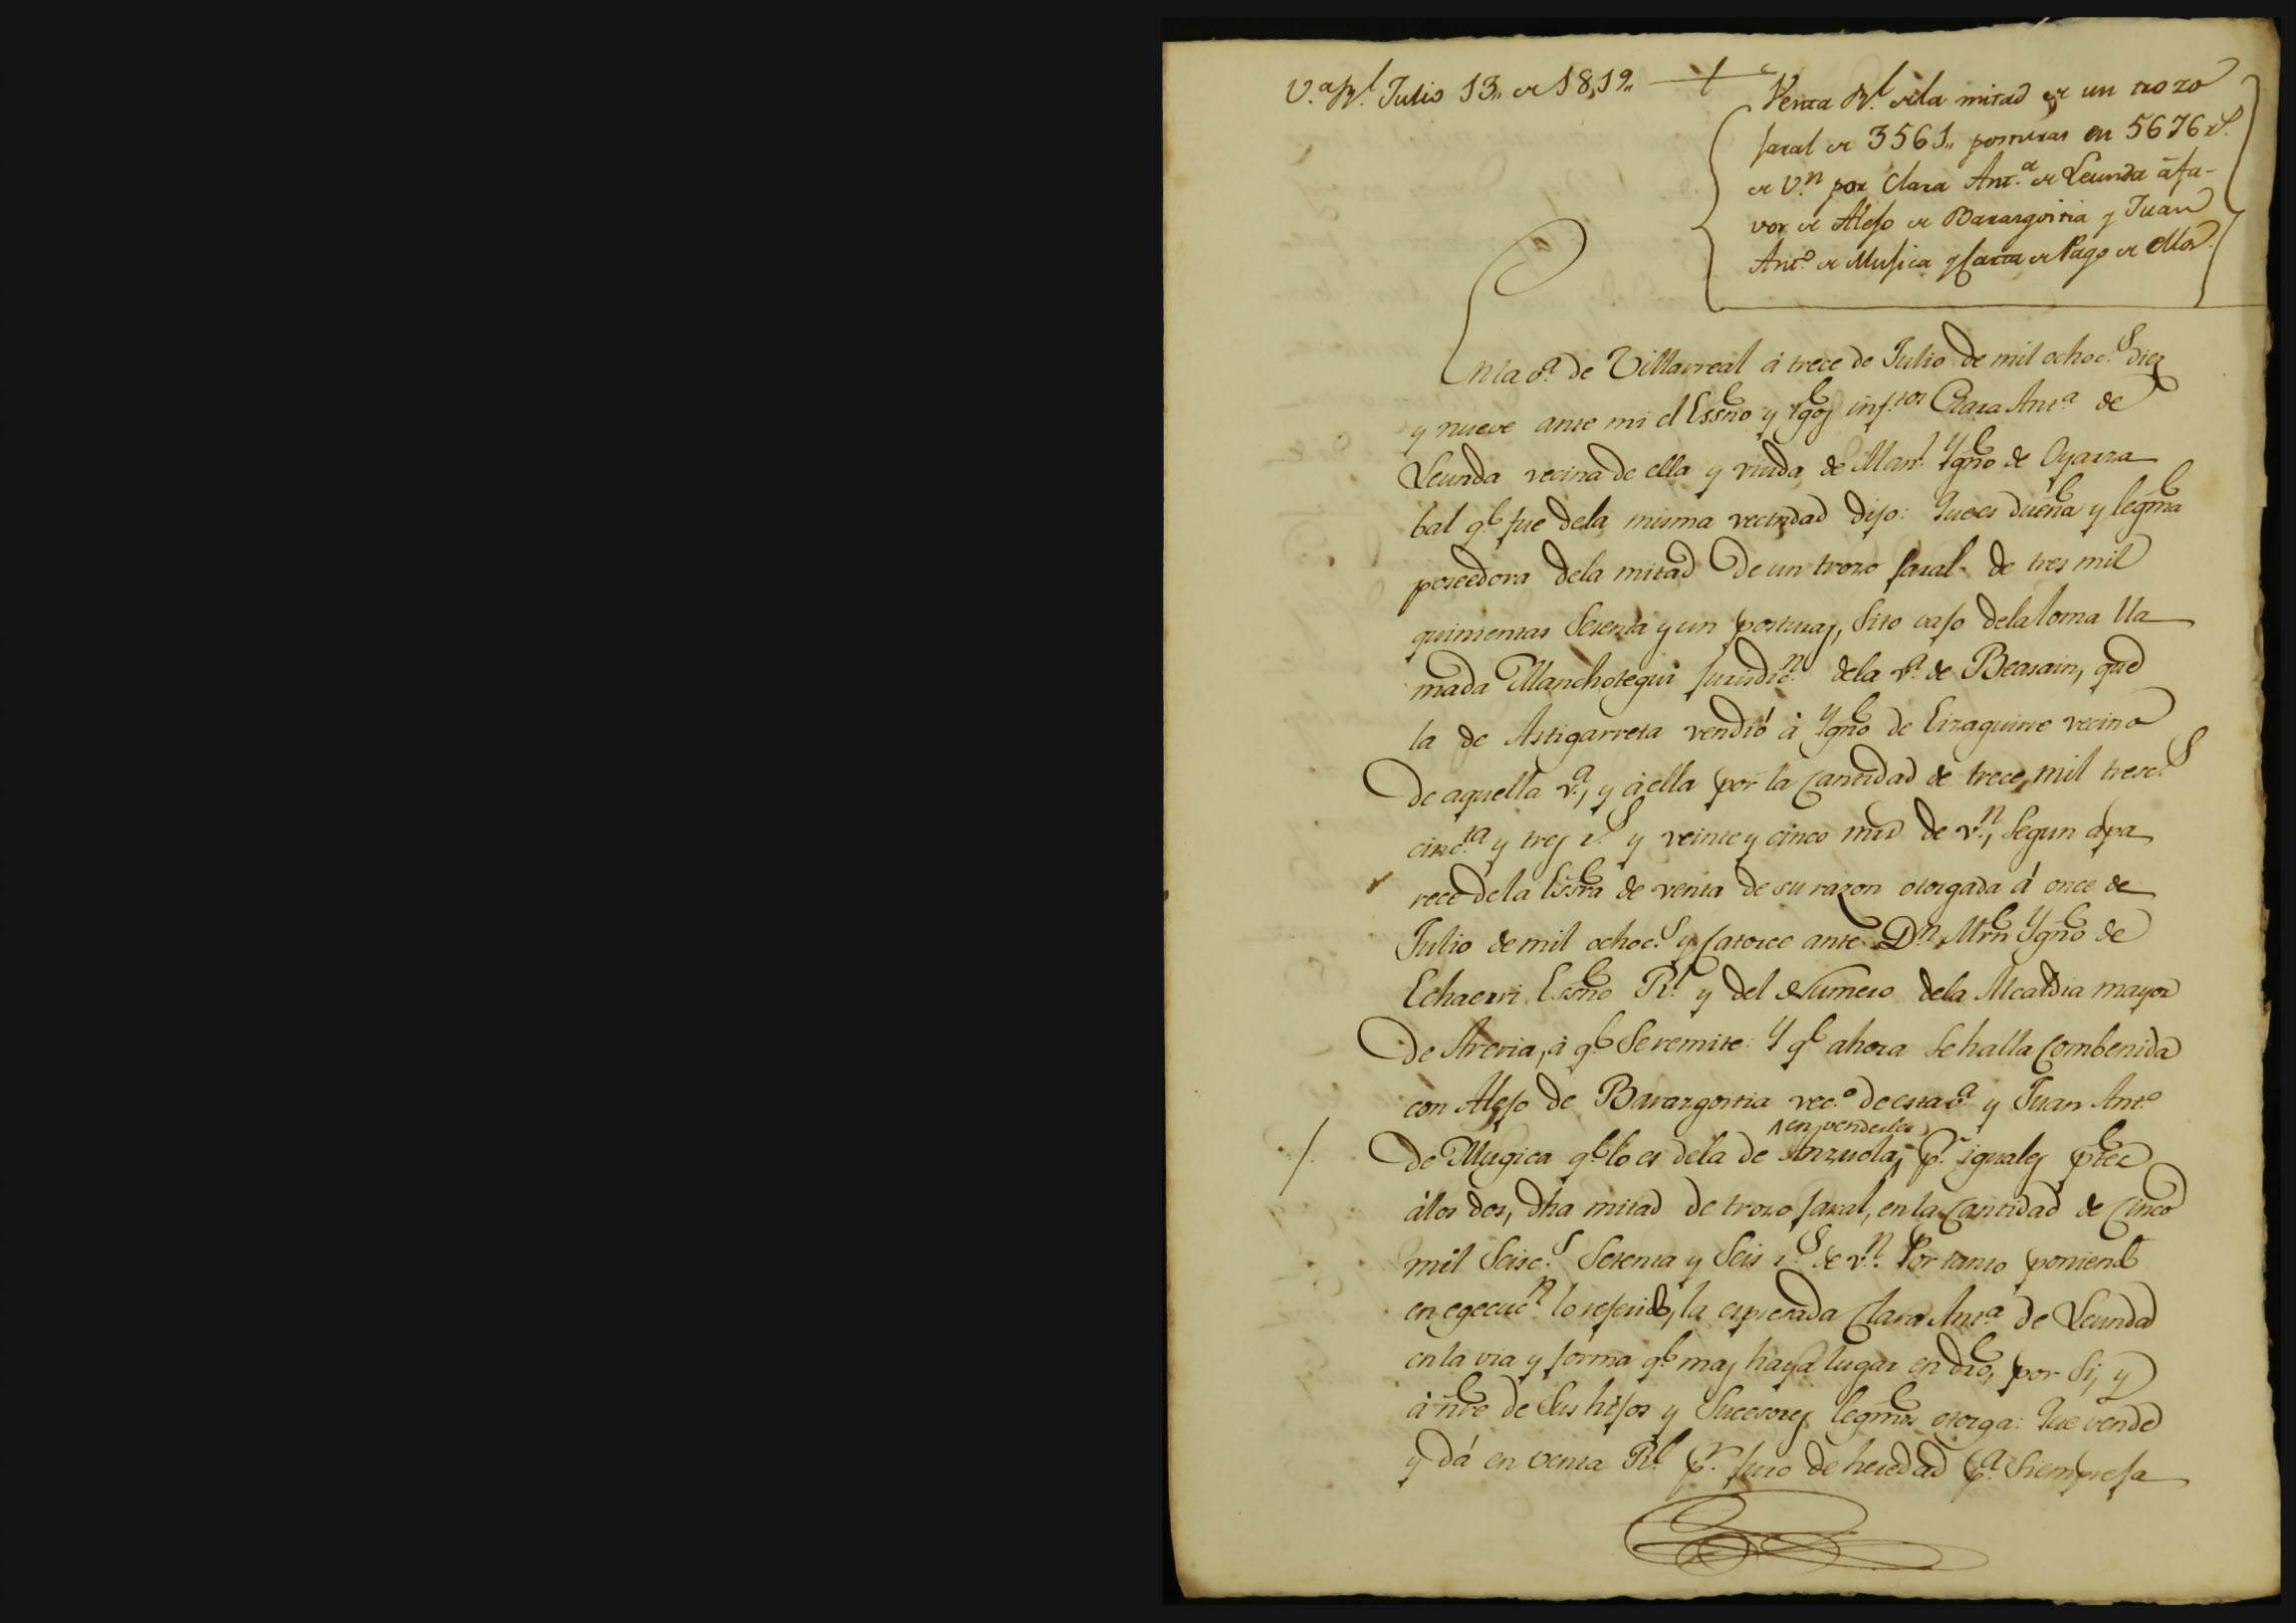 V.ª R.l Julio 13,, de 1819,,
Venta R.l de la mitad de un trozo
jaral de 3561,, posturas en 5676 r.s
de V.n por Clara Ant.ª de Leunda á fa-
vor de Alejo de Barazgoitia y Juan
Ant.º de Mujica y Carta de Pago de ellos.
En la v.ª de Villarreal á trece de Julio de mil ochoc.s diez
y nueve ante mi el Essno y tgos inf.tos Clara Ant.ª de
Leunda vecina de ella y viuda de Man.l Ygno de Oyarza
bal q.e fue dela misma vecindad dijo: Que es dueña y legma
poseedora dela mitad de un trozo jaral de tres mil
quinientas setenta y un posturas, sito vajo dela loma lla
mada Manchotegui jurisdic.n dela v.ª de Beasain, que
la de Astigarreta vendió á Ygno de Eizaguirre vecino
de aquella v.ª, y á ella por la cantidad de trece mil tresc.s
cinc.ta y tres r.s y veinte y cinco mrs de v.n, segun apa
rece dela Essra de venta de su razon otorgada á once de
Julio de mil ochoc.s y catorce ante D.n Mrn Ygno de
Echaerri Essno R.l y del Numero dela Alcaldia mayor
de Areria, á q.e se remite: Y q.e ahora se halla combenida
con Alejo de Barazgoitia vec.º de esta v.ª y Juan Ant.º
^ en venderles
de Mugica q.e lo es dela de Anzuola, p.r iguales ptes
á los dos, dha mitad de trozo jaral, en la cantidad de cinco
mil seisc.s setenta y seis r.s de v.n. Por tanto poniendo
en egecuc.n lo referido, la espresada Clara Ant.ª de Leunda
en la via y forma q.e mas haya lugar en dro, por si, y
á nre de sus hijos y sucesores legmos otorga: Que vende
y dá en venta R.l p.r juro de heredad p.ª siempre ja